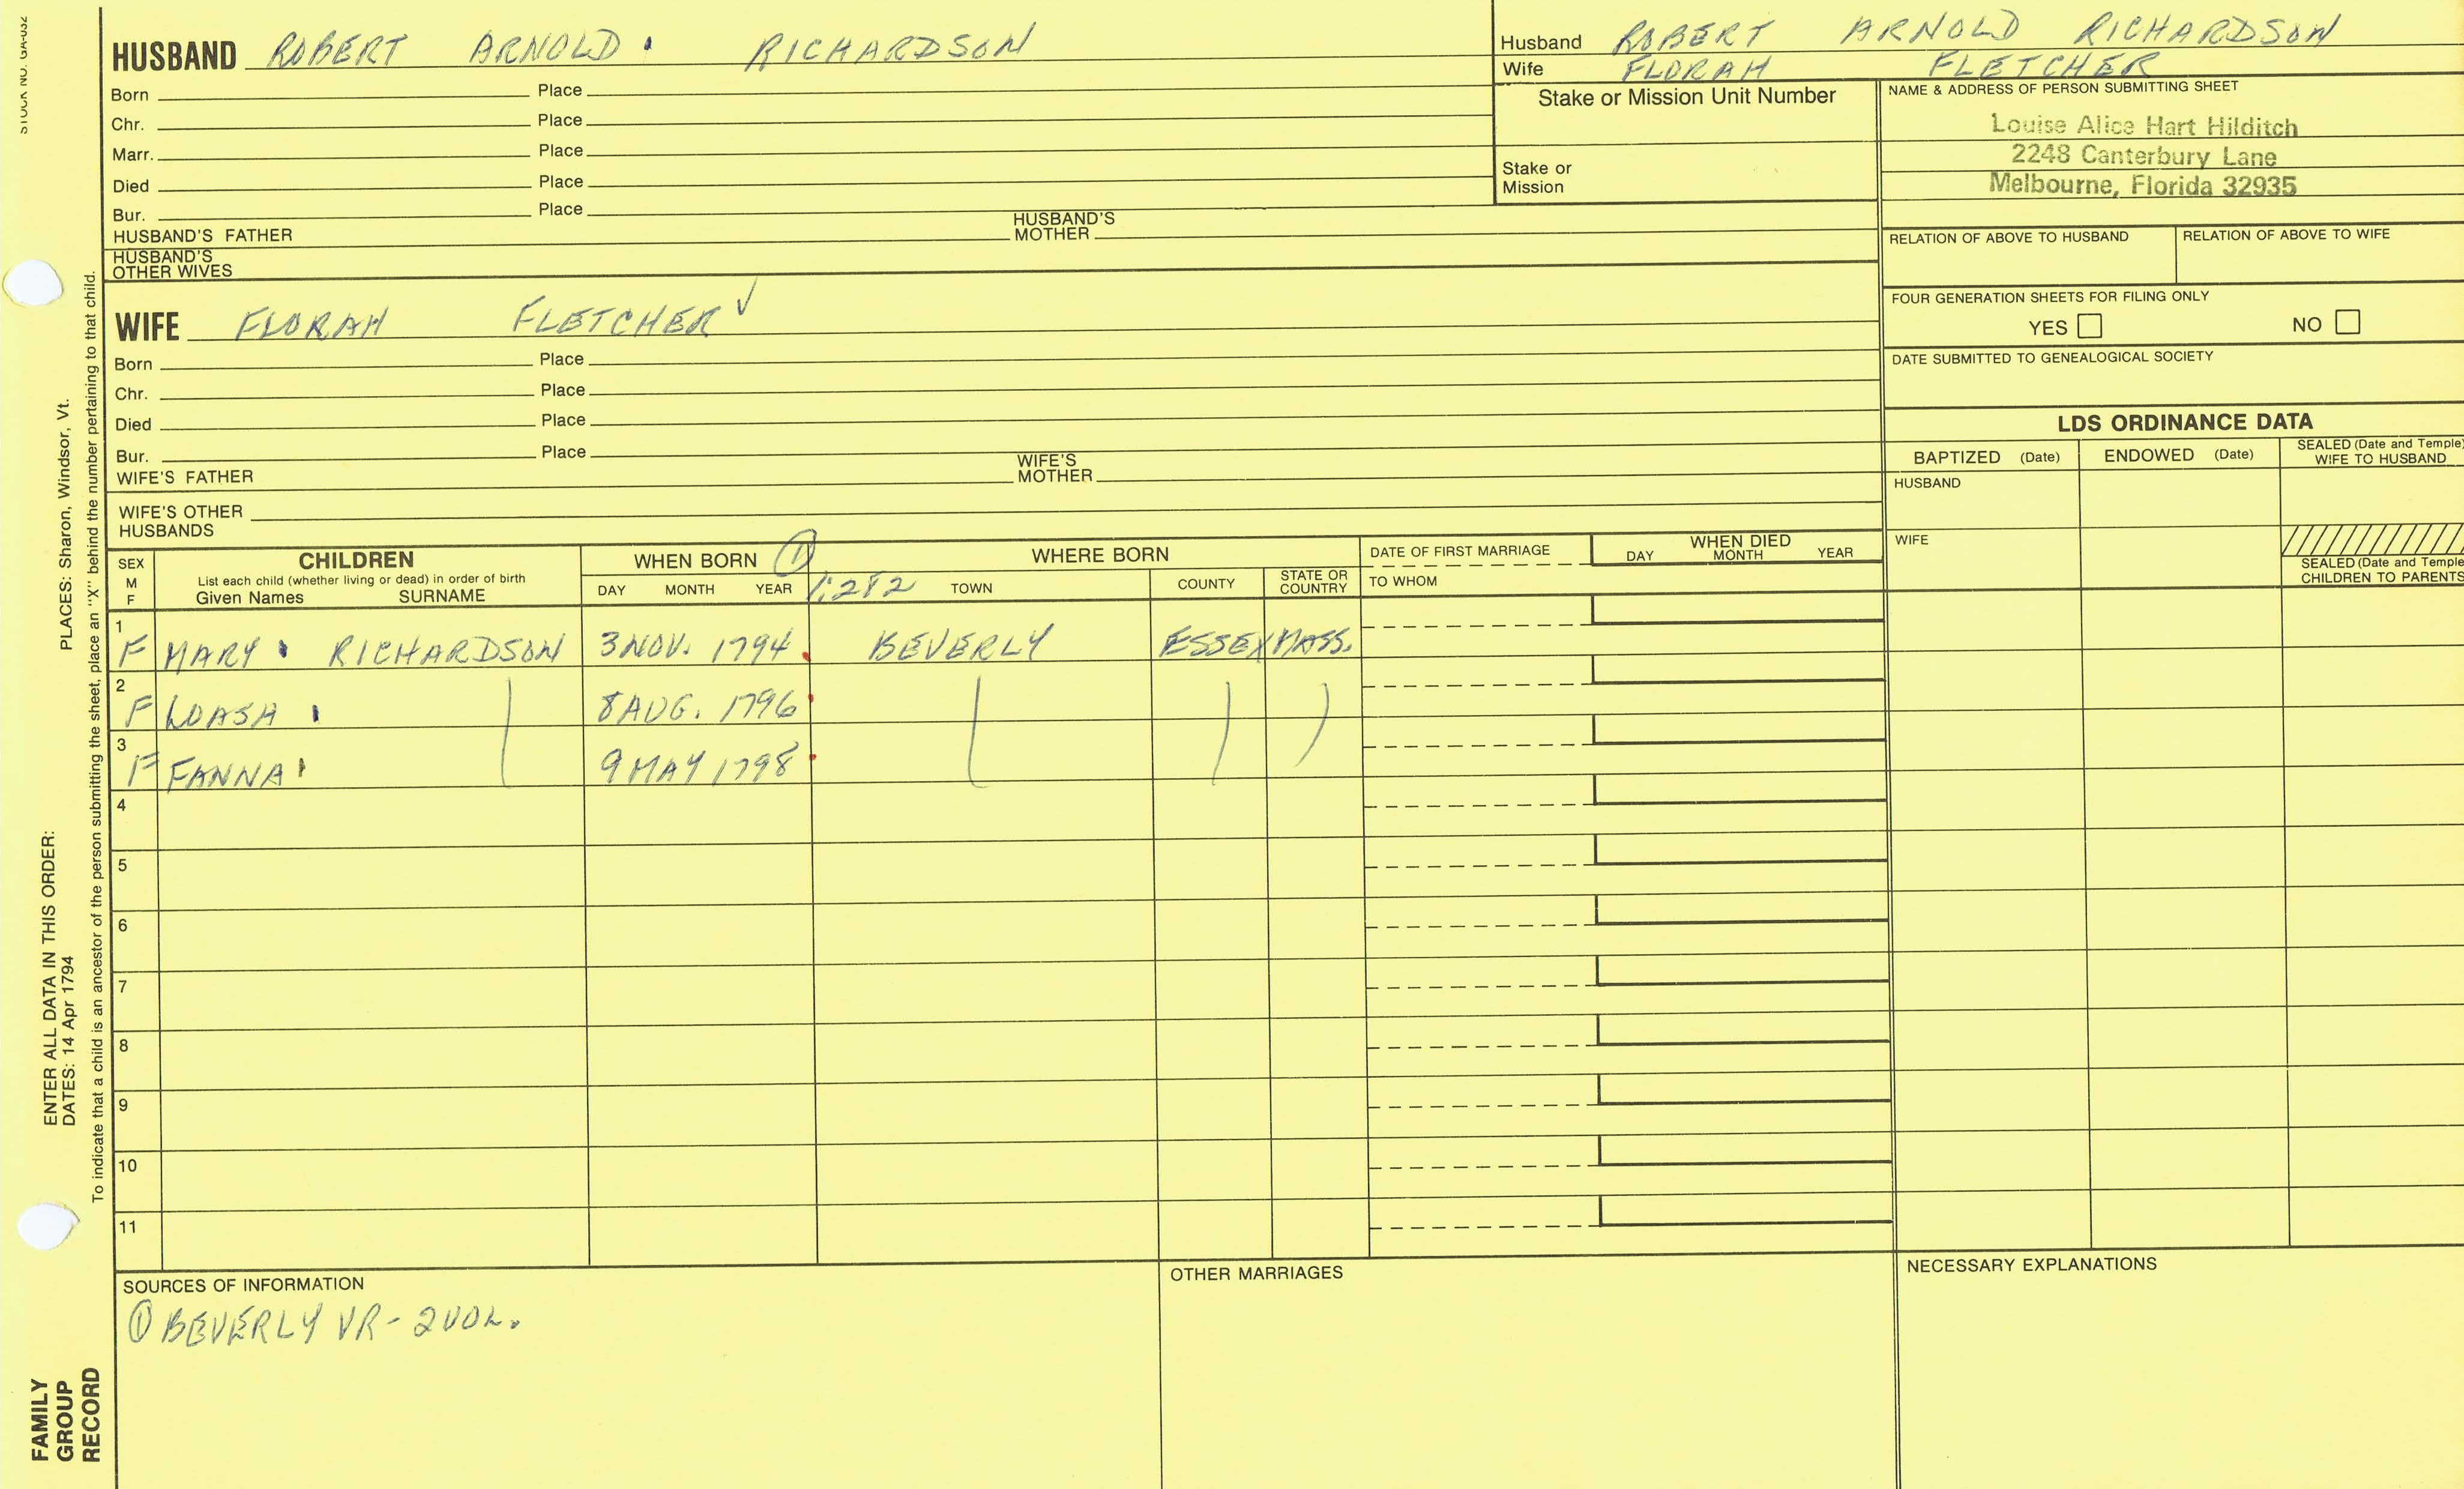 STOCK NO. GA-032
HUSBAND ROBERT ARNOLD RICHARDSON
Born Place
Chr. Place
Marr. Place
Died Place
Bur. Place
HUSBAND'S FATHER HUSBAND'S MOTHER
HUSBAND'S OTHER WIVES
WIFE FLORAH FLETCHER ✓
Born Place
Chr. Place
Died Place
Bur. Place
WIFE'S FATHER WIFE'S MOTHER
WIFE'S OTHER HUSBANDS
Husband ROBERT ARNOLD RICHARDSON
Wife FLORAH FLETCHER
Stake or Mission Unit Number
Stake or Mission
NAME & ADDRESS OF PERSON SUBMITTING SHEET
Louise Alice Hart Hilditch
2248 Canterbury Lane
Melbourne, Florida 32935
RELATION OF ABOVE TO HUSBAND RELATION OF ABOVE TO WIFE
FOUR GENERATION SHEETS FOR FILING ONLY
YES NO
DATE SUBMITTED TO GENEALOGICAL SOCIETY
LDS ORDINANCE DATA
BAPTIZED (Date) ENDOWED (Date) SEALED (Date and Temple) WIFE TO HUSBAND
HUSBAND
WIFE
SEALED (Date and Temple) CHILDREN TO PARENTS
SEX M F
CHILDREN
List each child (whether living or dead) in order of birth
Given Names SURNAME
WHEN BORN ①
DAY MONTH YEAR 1:282
WHERE BORN
TOWN COUNTY STATE OR COUNTRY
DATE OF FIRST MARRIAGE
TO WHOM
WHEN DIED
DAY MONTH YEAR
1 F MARY RICHARDSON 3 NOV. 1794 BEVERLY ESSEX MASS.
2 F LOASA 8 AUG. 1796
3 F FANNA 9 MAY 1798
4
5
6
7
8
9
10
11
SOURCES OF INFORMATION
① BEVERLY VR - 2 VOL.
OTHER MARRIAGES
NECESSARY EXPLANATIONS
PLACES: Sharon, Windsor, Vt.
ENTER ALL DATA IN THIS ORDER:
DATES: 14 Apr 1794
To indicate that a child is an ancestor of the person submitting the sheet, place an "X" behind the number pertaining to that child.
FAMILY
GROUP
RECORD